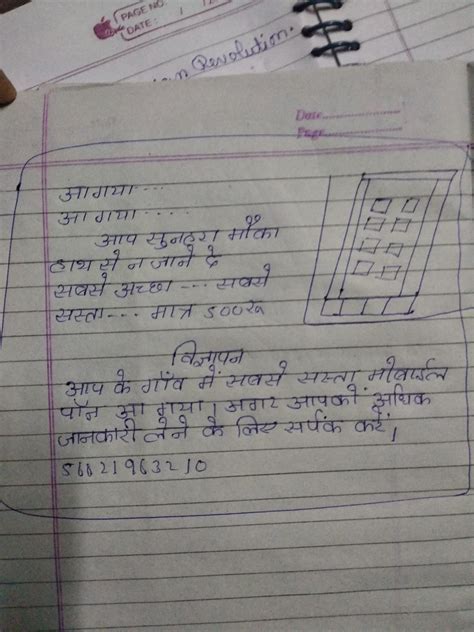 PAGE NO.
DATE:
Revolution.
Date
Page
आ गया ....
आ गया ....
आप सुनहरा मौका
हाथ से न जाने दे
सबसे अच्छा --- सबसे
सस्ता --- मात्र ५००रू
विज्ञापन
आप के गाँव में सबसे सस्ता मोबाईल
पॉन आ गया। अगर आपको अधिक
जानकारी लेने के लिए सर्पक करें।
56621963210